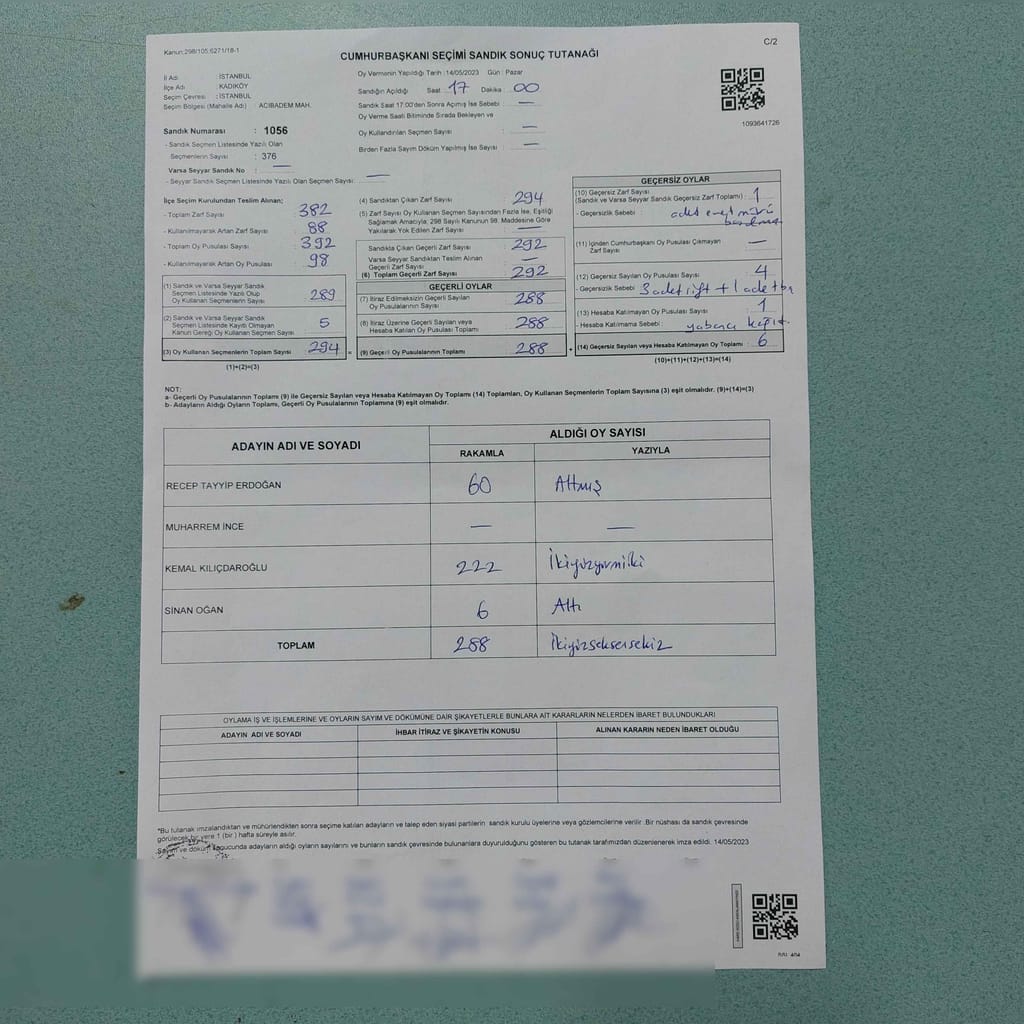 Kanun:298/105;6271/18-1
C/2
CUMHURBAŞKANI SEÇİMİ SANDIK SONUÇ TUTANAĞI
İl Adı : İSTANBUL
İlçe Adı : KADIKÖY
Seçim Çevresi : İSTANBUL
Seçim Bölgesi (Mahalle Adı) : ACIBADEM MAH.
Sandık Numarası : 1056
- Sandık Seçmen Listesinde Yazılı Olan
Seçmenlerin Sayısı : 376
Varsa Seyyar Sandık No : —
- Seyyar Sandık Seçmen Listesinde Yazılı Olan Seçmen Sayısı: —
Oy Vermenin Yapıldığı Tarih :14/05/2023 Gün : Pazar
Sandığın Açıldığı Saat : 17 Dakika : 00
Sandık Saat 17:00'den Sonra Açımış İse Sebebi : —
Oy Verme Saati Bitiminde Sırada Bekleyen ve
Oy Kullandırılan Seçmen Sayısı : —
Birden Fazla Sayım Döküm Yapılmış İse Sayısı : —
1093641726
İlçe Seçim Kurulundan Teslim Alınan;
- Toplam Zarf Sayısı : 382
- Kullanılmayarak Artan Zarf Sayısı : 88
- Toplam Oy Pusulası Sayısı : 392
- Kullanılmayarak Artan Oy Pusulası : 98
(1) Sandık ve Varsa Seyyar Sandık
Seçmen Listesinde Yazılı Olup
Oy Kullanan Seçmenlerin Sayısı : 289
(2) Sandık ve Varsa Seyyar Sandık
Seçmen Listesinde Kayıtlı Olmayan
Kanun Gereği Oy Kullanan Seçmen Sayısı : 5
(3) Oy Kullanan Seçmenlerin Toplam Sayısı : 294 =
(1)+(2)=(3)
(4) Sandıktan Çıkan Zarf Sayısı : 294
(5) Zarf Sayısı Oy Kullanan Seçmen Sayısından Fazla İse, Eşitliği
Sağlamak Amacıyla; 298 Sayılı Kanunun 98. Maddesine Göre
Yakılarak Yok Edilen Zarf Sayısı : —
Sandıkta Çıkan Geçerli Zarf Sayısı : 292
Varsa Seyyar Sandıktan Teslim Alınan
Geçerli Zarf Sayısı : —
(6) Toplam Geçerli Zarf Sayısı : 292
GEÇERLİ OYLAR
(7) İtiraz Edilmeksizin Geçerli Sayılan
Oy Pusulalarının Sayısı : 288
(8) İtiraz Üzerine Geçerli Sayılan veya
Hesaba Katılan Oy Pusulası Toplamı : 288
(9) Geçerli Oy Pusulalarının Toplamı : 288 +
GEÇERSİZ OYLAR
(10) Geçersiz Zarf Sayısı
(Sandık ve Varsa Seyyar Sandık Geçersiz Zarf Toplamı) : 1
- Geçersizlik Sebebi : adet evet mürü
(11) İçinden Cumhurbaşkanı Oy Pusulası Çıkmayan
Zarf Sayısı : —
(12) Geçersiz Sayılan Oy Pusulası Sayısı : 4
- Geçersizlik Sebebi : 3 adet çift + 1 adet
(13) Hesaba Katılmayan Oy Pusulası Sayısı : 1
- Hesaba Katılmama Sebebi : yabancı kağıt
(14) Geçersiz Sayılan veya Hesaba Katılmayan Oy Toplamı : 6
(10)+(11)+(12)+(13)=(14)
NOT:
a- Geçerli Oy Pusulalarının Toplamı (9) ile Geçersiz Sayılan veya Hesaba Katılmayan Oy Toplamı (14) Toplamları, Oy Kullanan Seçmenlerin Toplam Sayısına (3) eşit olmalıdır. (9)+(14)=(3)
b- Adayların Aldığı Oyların Toplamı, Geçerli Oy Pusulalarının Toplamına (9) eşit olmalıdır.
ADAYIN ADI VE SOYADI
ALDIĞI OY SAYISI
RAKAMLA YAZIYLA
RECEP TAYYİP ERDOĞAN 60 Altmış
MUHARREM İNCE — —
KEMAL KILIÇDAROĞLU 222 İkiyüzyirmiiki
SİNAN OĞAN 6 Altı
TOPLAM 288 İkiyüzseksensekiz
OYLAMA İŞ VE İŞLEMLERİNE VE OYLARIN SAYIM VE DÖKÜMÜNE DAİR ŞİKAYETLERLE BUNLARA AİT KARARLARIN NELERDEN İBARET BULUNDUKLARI
ADAYIN ADI VE SOYADI İHBAR İTİRAZ VE ŞİKAYETİN KONUSU ALINAN KARARIN NEDEN İBARET OLDUĞU
*Bu tutanak imzalandıktan ve mühürlendikten sonra seçime katılan adayların ve talep eden siyasi partilerin sandık kurulu üyelerine veya gözlemcilerine verilir. Bir nüshası da sandık çevresinde
görülecek bir yere 1 (bir) hafta süreyle asılır.
Sayım ve döküm sonucunda adayların aldığı oyların sayılarını ve bunların sandık çevresinde bulunanlara duyurulduğunu gösteren bu tutanak tarafımızdan düzenlenerek imza edildi. 14/05/2023